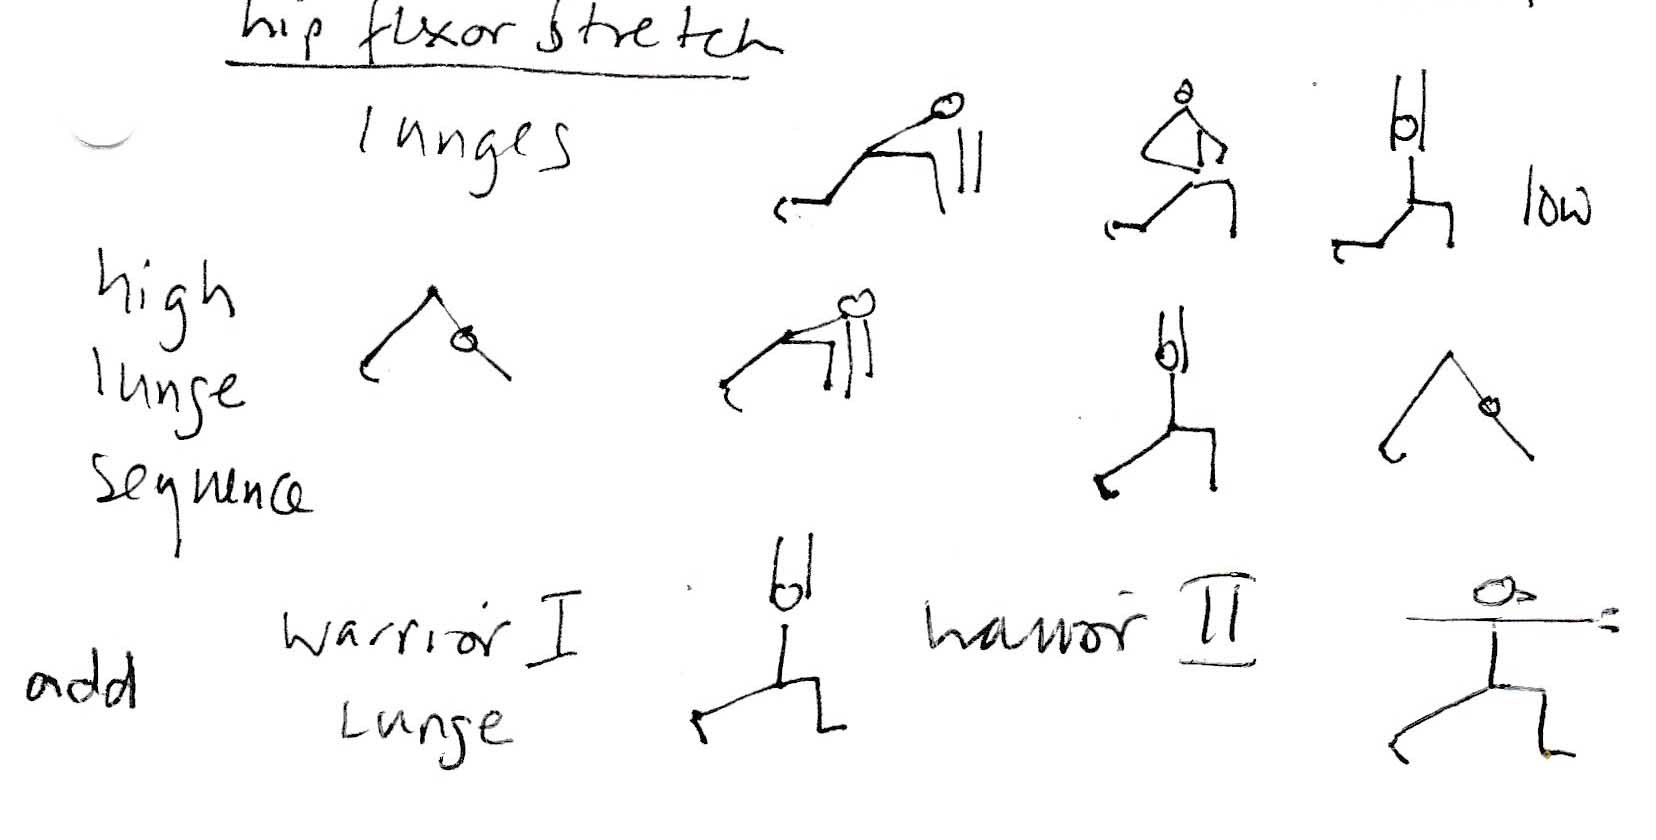 hip fluxor stretch
lunges
low
high
lunge
sequence
add
warrior I
Lunge
warrior II